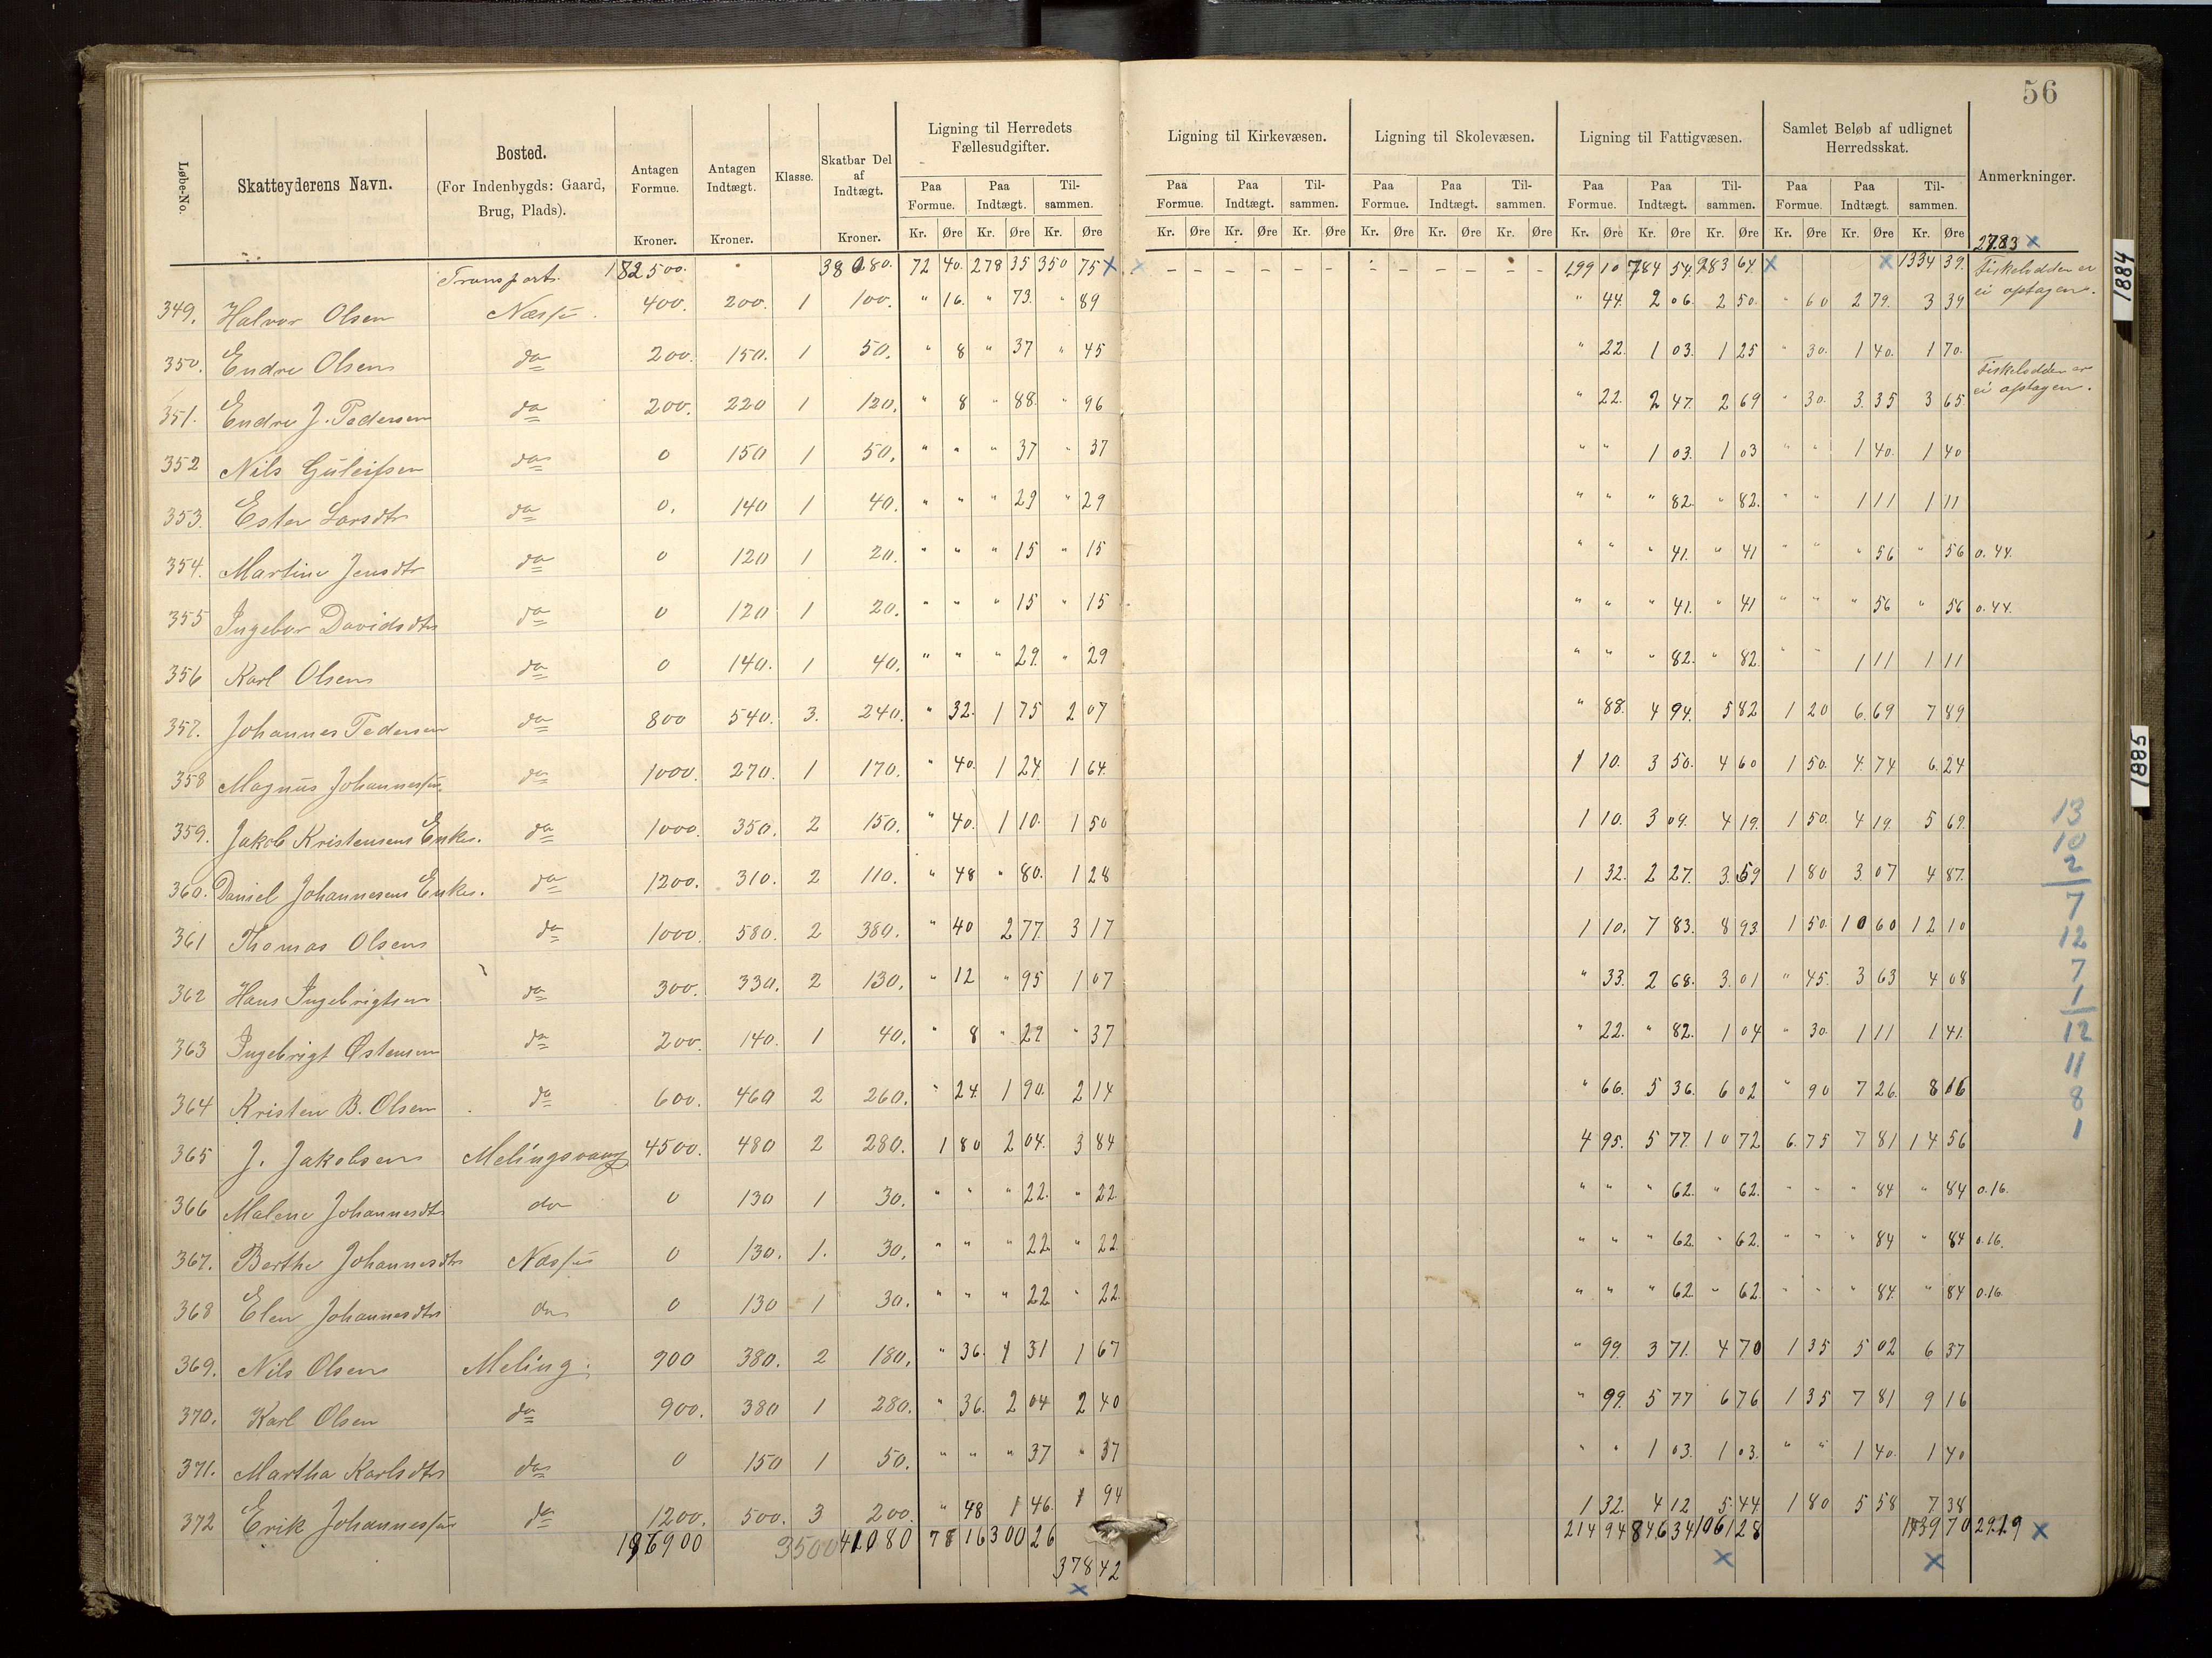 56
Løbe-No. Skatteyderens Navn. Bosted. (For Indenbygds: Gaard, Brug, Plads). Antagen Formue. Kroner. Antagen Indtægt. Kroner. Klasse. Skatbar Del af Indtægt. Kroner. Ligning til Herredets Fællesudgifter. Paa Formue. Kr. Øre Paa Indtægt. Kr. Øre Til-sammen. Kr. Øre Ligning til Kirkevæsen. Paa Formue. Kr. Øre Paa Indtægt. Kr. Øre Til-sammen. Kr. Øre Ligning til Skolevæsen. Paa Formue. Kr. Øre Paa Indtægt. Kr. Øre Til-sammen. Kr. Øre Ligning til Fattigvæsen. Paa Formue. Kr. Øre Paa Indtægt. Kr. Øre Til-sammen. Kr. Øre Samlet Beløb af udlignet Herredsskat. Paa Formue. Kr. Øre Paa Indtægt. Kr. Øre Til-sammen. Kr. Øre Anmerkninger.
2783 x
Transport. 182500. 38080. 72 40. 278 35 350 75 x - - - - - - - - - - - - 199 10 784 54. 983 64. x x 1334 39. Fiskelodden er
ei optagen.
349. Halvor Olsen 400. 200. 1 100. " 16. " 73. " 89 " 44. 2 06. 2 50. " 60 2 79. 3 39
350. Endre Olsen do 200. 150. 1 50. " 8 " 37 " 45 " 22. 1 03. 1 25 " 30. 1 40. 1 70.
Fiskelodden er
ei optagen.
351. Endre J. Pedersen do 200. 220 1 120. " 8 " 88. " 96 " 22. 2 47. 2 69 " 30. 3 35 3 65.
352 Nils do 0 150 1 50. " " " 37 " 37 " " 1 03. 1 03 " " 1 40. 1 40
353. Ester Larsdtr do 0. 140 1 40. " " " 29 " 29 " " " 82. " 82. " " 1 11 1 11
354. Martine Jensdtr do 0 120 1 20. " " " 15 " 15 " " " 41. " 41 " " " 56 " 56 0.44.
355 Ingebor Davidsdtr do 0 120 1 20. " " " 15 " 15 " " " 41. " 41 " " " 56 " 56 0.44.
356 Karl Olsen do 0 140. 1 40. " " " 29. " 29 " " " 82. " 82. " " 1 11 1 11
357. Johannes Pedersen do 800 540. 3. 240. " 32. 1 75 2 07 " 88. 4 94. 5 82 1 20 6.69 7 89
358 Magnus Johannessen do 1000. 270. 1 170. " 40. 1 24. 1 64. 1 10. 3 50. 4 60 1 50. 4 74 6.24
359. Jakob Kristensens Enke. do 1000. 350. 2 150. " 40. 1 10. 1 50 1 10. 3 09. 4 19. 1 50. 4 19. 5 69.
360. Daniel Johannesens Enke. do 1200. 310. 2 110. " 48 " 80. 1 28 1 32. 2 27. 3.59 1 80 3.07 4 87.
361 Thomas Olsen do 1000. 580. 2 380. " 40 2 77. 3 17 1 10. 7 83. 8 93. 1 50. 10 60 12 10
362 Hans Ingebrigtsen do 300. 330. 2 130. " 12 " 95 1 07 " 33. 2 68. 3.01 " 45. 3 63 4 08
363 Ingebrigt Østensen do 200. 140. 1 40. " 8 " 29 " 37 " 22. " 82. 1 04 " 30. 1 11 1 41.
364 Kristen B. Olsen do 600. 460 2 260. " 24. 1 90. 2 14 " 66. 5 36. 6 02 " 90 7 26. 8 16
365 J. Jakobsen Melingsvaag 4500. 480 2 280. 1 80 2 04. 3 84 4 95. 5 77. 10 72 6.75 7 81 14 56
366 Malene Johannesdtr do 0 130 1 30. " " " 22. " 22. " " " 62. " 62. " " " 84 " 84 0.16.
367. Berthe Johannesdtr 0 130. 1. 30. " " " 22 " 22. " " " 62. " 62. " " " 84 " 84 0.16.
368 Elen Johannesdtr do 0 130 1 30. " " " 22 " 22. " " " 62. " 62 " " " 84. " 84 0.16.
369. Nils Olsen Meling. 900 380. 2 180. " 36. 1 31 1 67 " 99. 3 71. 4 70 1 35 5 02 6 37
370. Karl Olsen do 900. 380 1 280. " 36. 2 04 2 40 " 99. 5 77 6 76 1 35 7 81 9 16
371. Martha Karlsdtr do 0 150 1 50. " " " 37 " 37 " " 1 03. 1 03. " " 1 40. 1 40
372 Erik Johannessen do 1200. 500. 3 200. " 48 1 46. 1 94 1 32. 4 12 5.44 1 80 5 58 7 38
196900 3500 41080 78 16 300 26 214 94 846 34 1061 28 1439 70 2929 x
378 42 x x
x
13
10
2
7
12
7
1
12
11
8
1
1884
1885